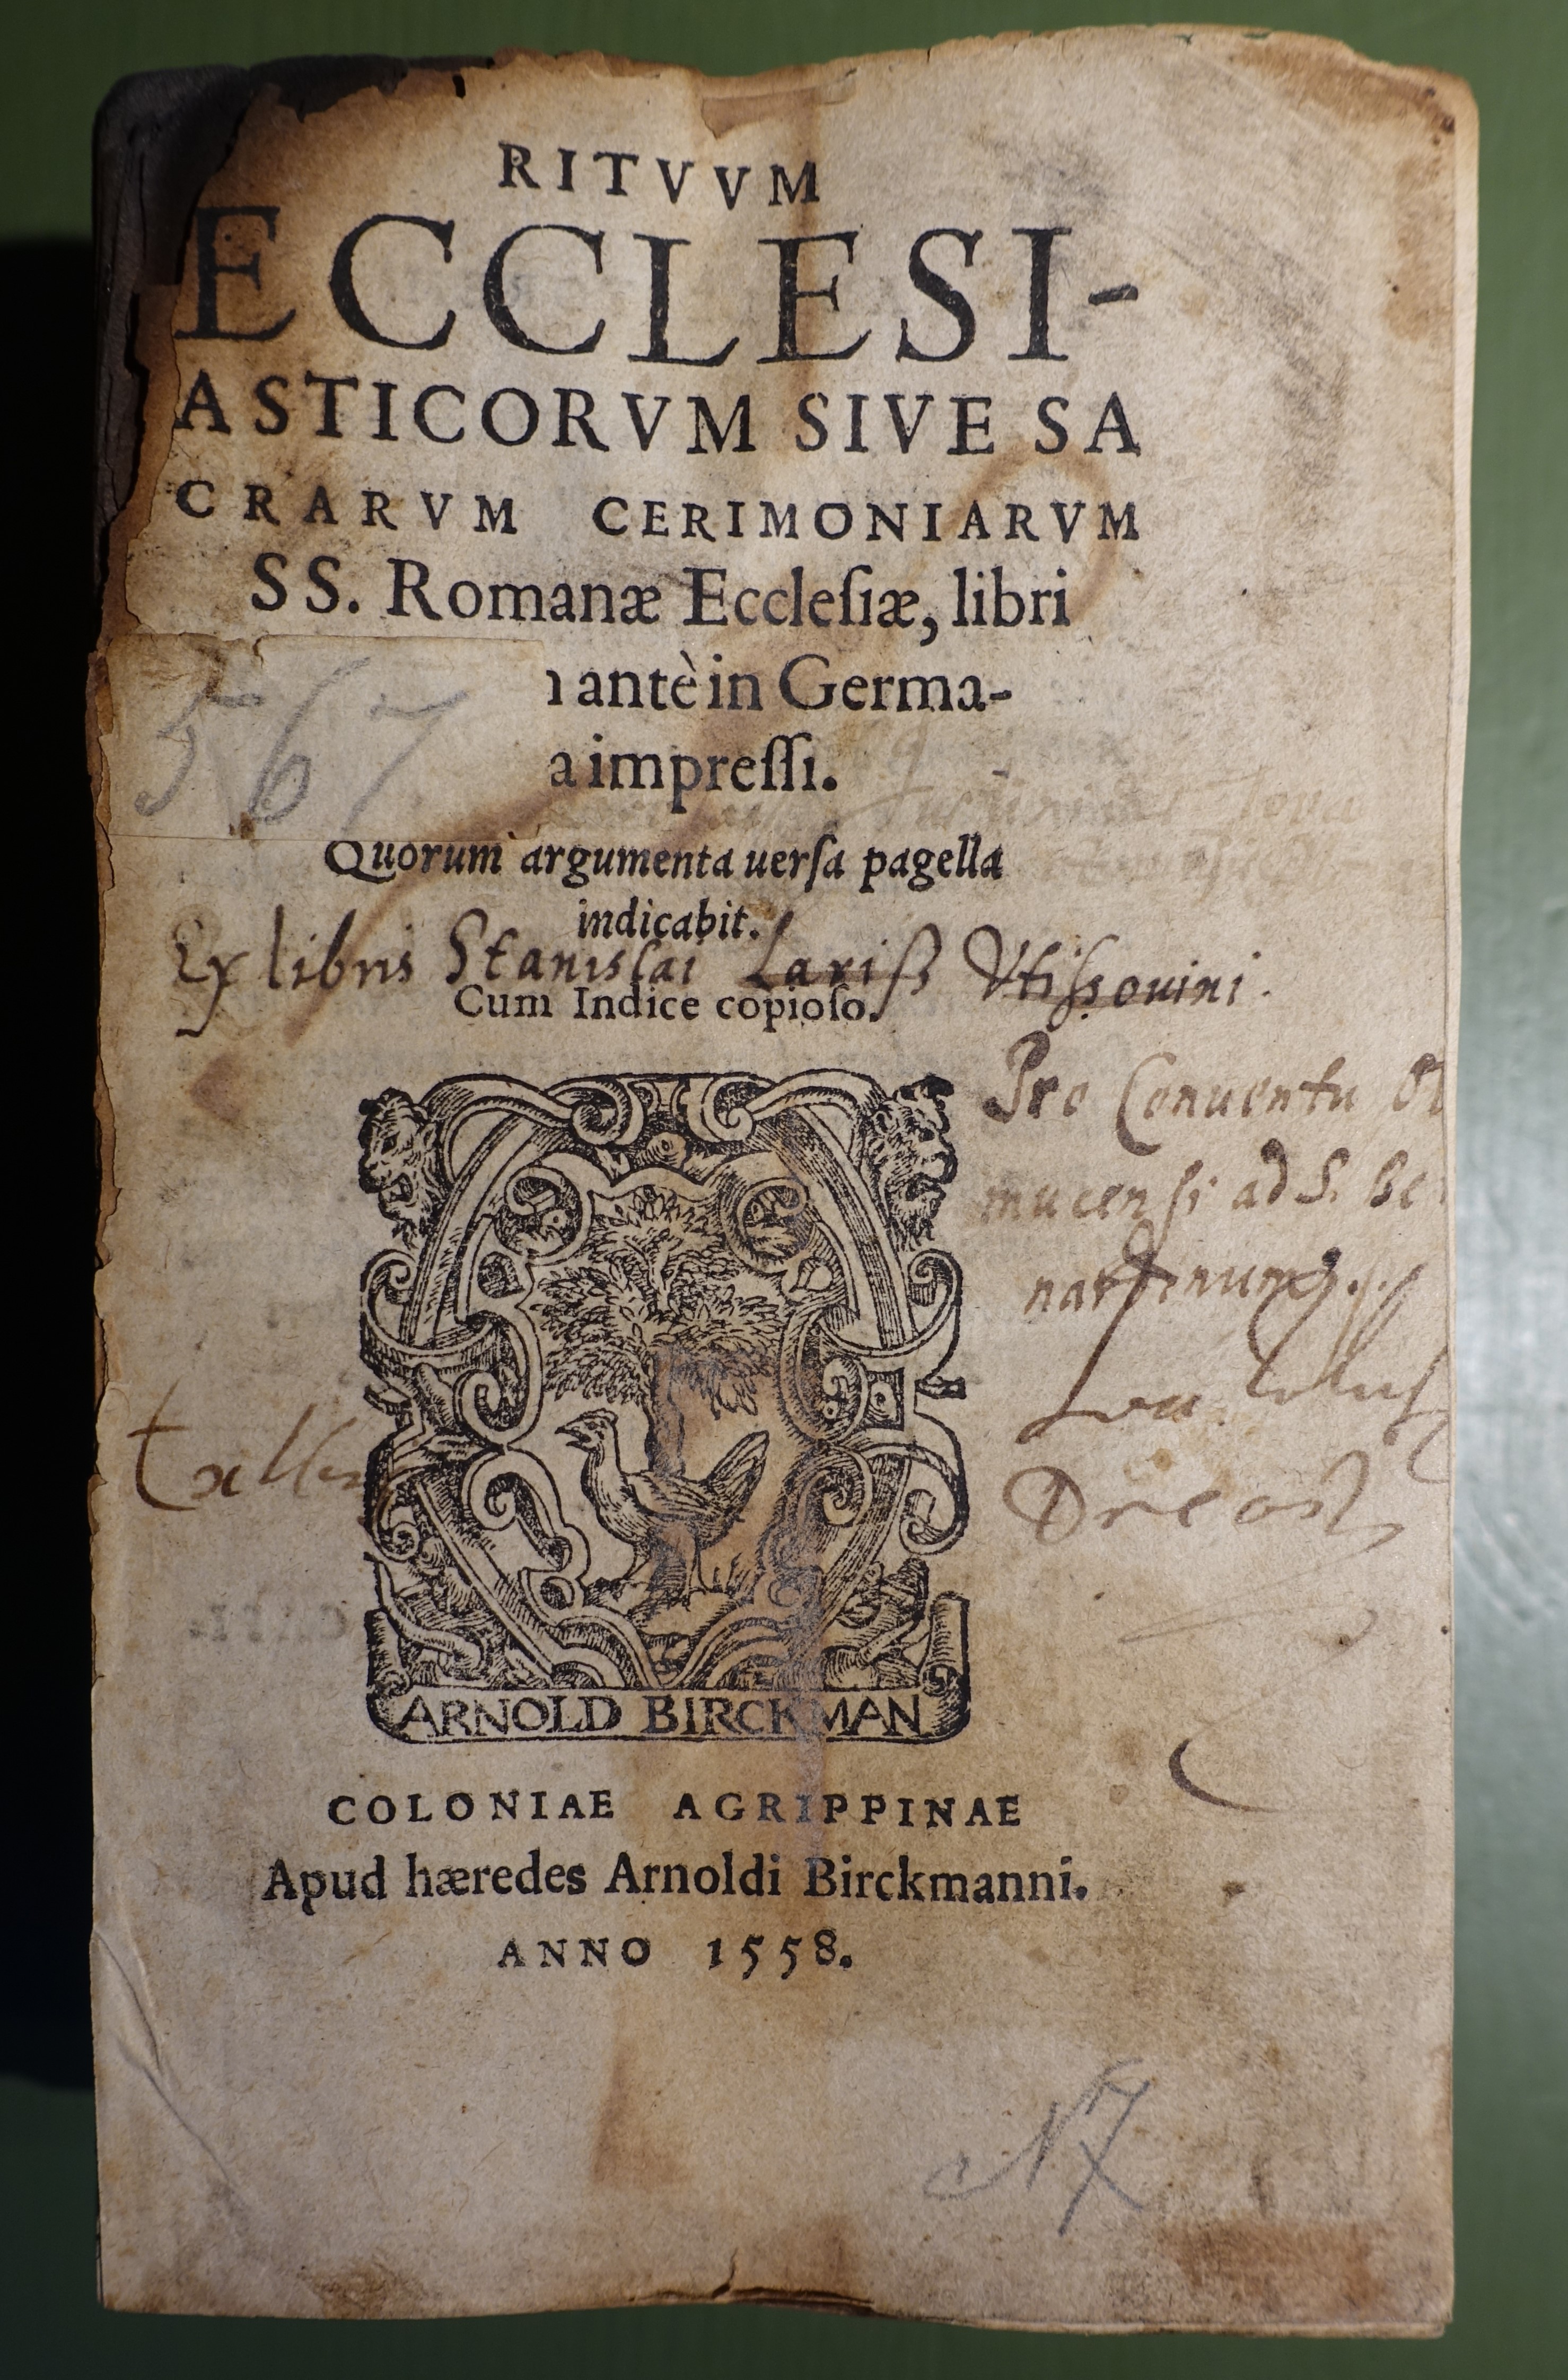 RITVVM
ECCLESI-
ASTICORVM SIVE SA
CRARVM CERIMONIARVM
SS. Romanæ Eccleſiæ, libri
567
antè in Germa-
a impreſſi.
Quorum argumenta uerſa pagella
indicabit.
Ex libris Stanislai Lariß Vtißouini.
Cum Indice copioſo.
Pro Conuentu Ol
mucensi ad S. Be
nardinum
ARNOLD BIRCKMAN
COLONIAE AGRIPPINAE
Apud hæredes Arnoldi Birckmanni.
ANNO 1558.
N7